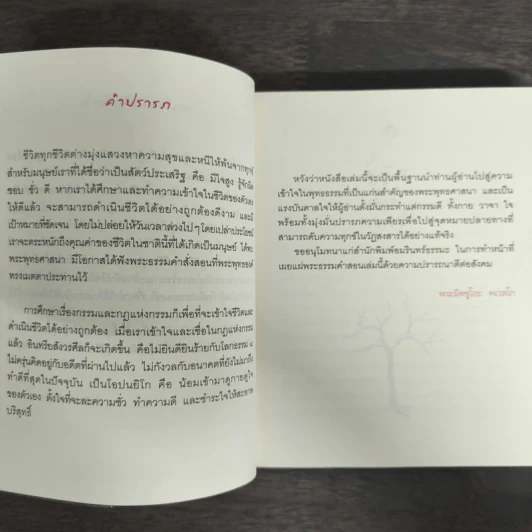 คำปรารภ
ชีวิตทุกชีวิตต่างมุ่งแสวงหาความสุขและหนีให้พ้นจากทุกข์
สำหรับมนุษย์เราที่ได้ชื่อว่าเป็นสัตว์ประเสริฐ คือ มีใจสูง รู้จักผิด
ชอบ ชั่ว ดี หากเราได้ศึกษาและทำความเข้าใจในชีวิตของตัวเอง
ให้ดีแล้ว จะสามารถดำเนินชีวิตได้อย่างถูกต้องดีงาม และมี
เป้าหมายที่ชัดเจน โดยไม่ปล่อยให้วันเวลาล่วงไปๆ โดยเปล่าประโยชน์
เราจะตระหนักถึงคุณค่าของชีวิตในชาตินี้ที่ได้เกิดเป็นมนุษย์ ได้พบ
พระพุทธศาสนา มีโอกาสได้ฟังพระธรรมคำสั่งสอนที่พระพุทธองค์
ทรงเมตตาประทานไว้
การศึกษาเรื่องกรรมและกฎแห่งกรรมก็เพื่อที่จะเข้าใจชีวิตและ
ดำเนินชีวิตได้อย่างถูกต้อง เมื่อเราเข้าใจและเชื่อในกฎแห่งกรรม
แล้ว อินทรียสังวรศีลก็จะเกิดขึ้น คือไม่ยินดียินร้ายกับโลกธรรม ๘
ไม่ครุ่นคิดอยู่กับอดีตที่ผ่านไปแล้ว ไม่กังวลกับอนาคตที่ยังไม่มาถึง
ทำดีที่สุดในปัจจุบัน เป็นโอปนยิโก คือ น้อมเข้ามาดูกายดูใจ
ของตัวเอง ตั้งใจที่จะละความชั่ว ทำความดี และชำระใจให้สะอาด
บริสุทธิ์
หวังว่าหนังสือเล่มนี้จะเป็นพื้นฐานนำท่านผู้อ่านไปสู่ความ
เข้าใจในพุทธธรรมที่เป็นแก่นสำคัญของพระพุทธศาสนา และเป็น
แรงบันดาลใจให้ผู้อ่านตั้งมั่นกระทำแต่กรรมดี ทั้งกาย วาจา ใจ
พร้อมทั้งมุ่งมั่นปรารภความเพียรเพื่อไปสู่จุดหมายปลายทางที่
สามารถดับความทุกข์ในวัฏสงสารได้อย่างแท้จริง
ขออนุโมทนาแก่สำนักพิมพ์อมรินทร์ธรรมะ ในการทำหน้าที่
เผยแผ่พระธรรมคำสอนเล่มนี้ด้วยความปรารถนาดีต่อสังคม
พระมิตซูโอะ คเวสโก